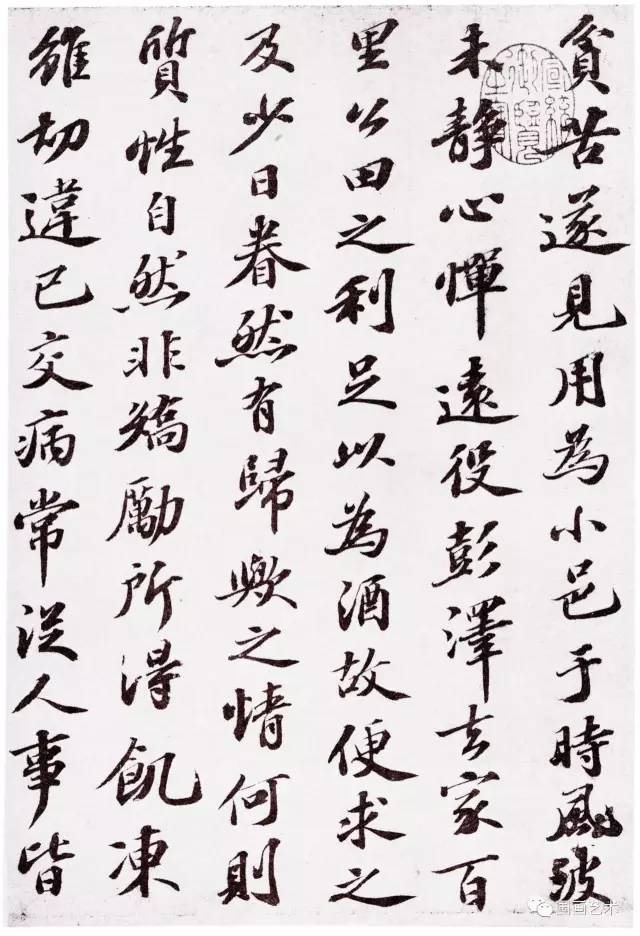 貧苦遂見用為小邑于時風波
未靜心憚遠役彭澤去家百
里公田之利足以為酒故便求之
及少日眷然有歸歟之情何則
質性自然非矯勵所得飢凍
雖切違己交病常從人事皆
宣統
御覽
之寶
国画艺术